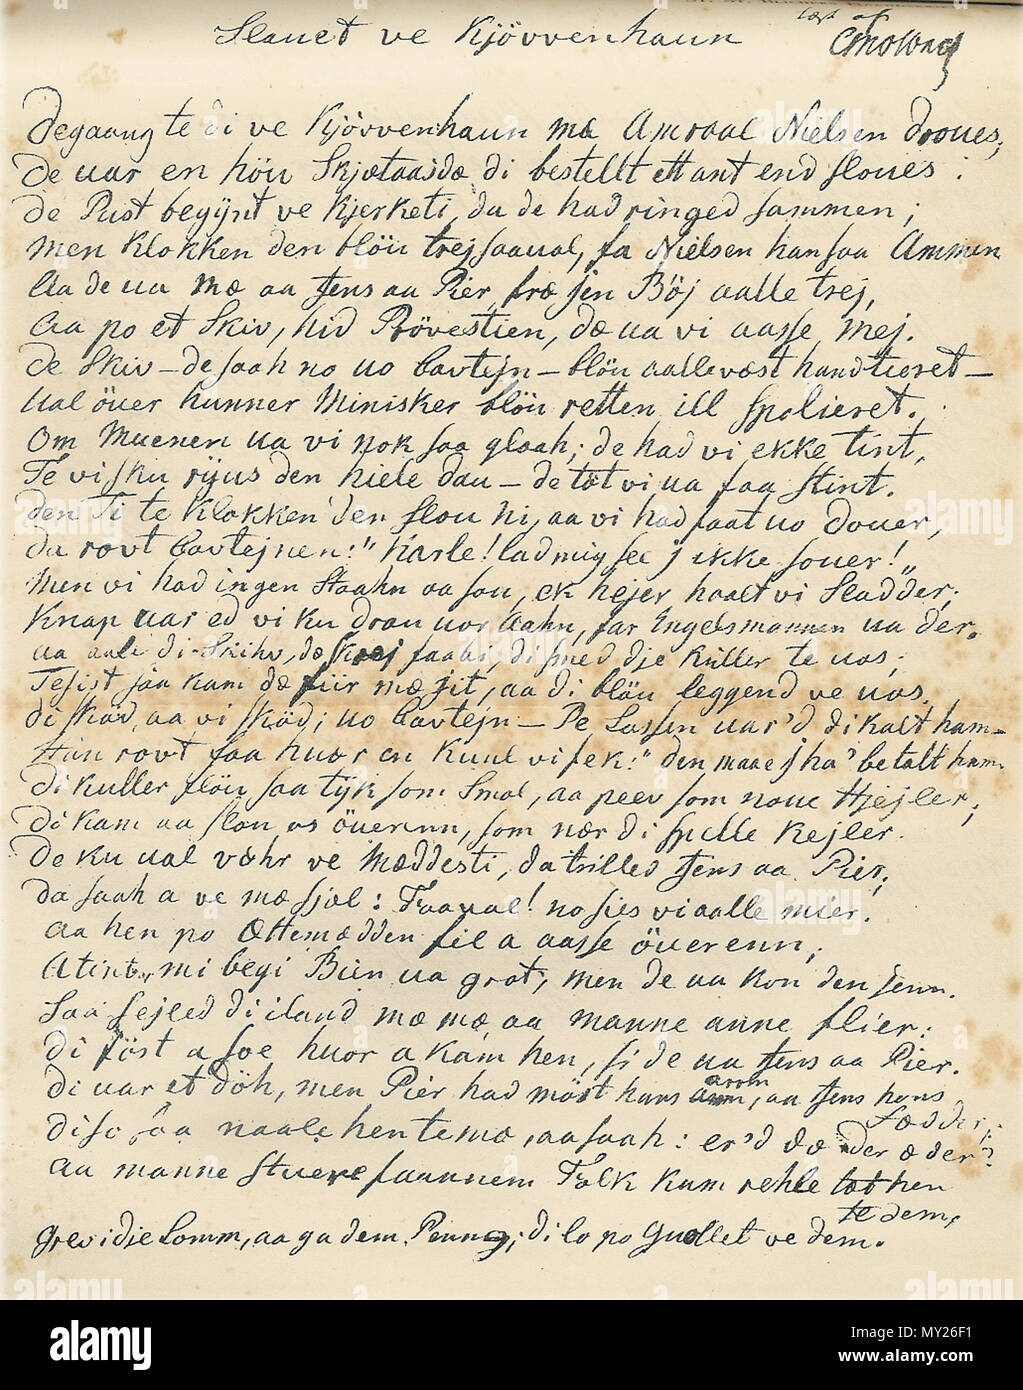 Slauet ve Kjövvenhaun
læst af
CMolbech
Degaang te di ve Kjövvenhaun mæ Amraal Nielsen droues,
De uar en höu Skjætaasdæ di bestellt ett ant end sloues:
De Pust begÿnt ve Kjerketi, da de had ringed sammen;
men Klokken den blöu trej saaual, fa Nielsen han saa Ammen
Aa de ua mæ aa Jens aa Pier, fræ jen Böj aalle trej,
aa po et Skiv, hid Prövestien, dæ ua vi aasse mej.
De Skiv – de saah no uo Cavtejn – blöu aallevæst handtieret –
Ual öuer hunner Minisker blöu retten ill spolieret.
Om Muenen ua vi nok saa gloah; de had vi ekke tint,
Te vi sku rÿus den hiele dau – de töt vi ua faa stint.
den Ti te Klokken den slou ni, aa vi had faat uo douer,
da rovt Cavtejnen: "Karle! lad mig see j ikke souer!"
Men vi had ingen Staahn aa sou, ek hejer haalt vi Sladder;
Knap uar ed vi ku drau uor Aahn, far Engelsmannen ua der.
aa aale di Skihv, dæ skej faabi, di smed dje kuller te uos;
Tesist saa kam dæ fiir mæ jit, aa di blöu leggend ve uos.
di sköd, aa vi sköd; uo Cavtejn – Pe Lassen uar'd di kalt ham –
Han rovt faa huor en Kuul vi fek: "den maae j ha' betalt ham
Di kuller flöu saa tÿk som Smal, aa peev som noue Hjejler;
di kam aa slou os öuerenn, som nær di spelle Kejler.
De ku ual vahr ve Mæddesti, da trilled Jens aa Pier;
da saah a ve mæ sjæl: Faaual! no sies vi aalle mier.
aa hen po Ættemædden fil a aasse öuerenn;
A tint, mi begi Bien ua grot, men de ua kon den jenn.
Saa sejled di i land mæ mæ, aa manne anne flier:
di föst a soe, huor a kam hen, si de ua Jens aa Pier.
di uar et döh, men Pier had möst hans arrm, aa Jens hans
Fædder;
di so saa naale hen te mæ, aa saah: er'd dæ der æ der?
aa manne stuere faannem Folk kam rehle hen
te dem,
grev i die Lomm, aa ga dem Penng; di lo po Guollet ve dem.
alamy
Image ID: MY26F1
www.alamy.com